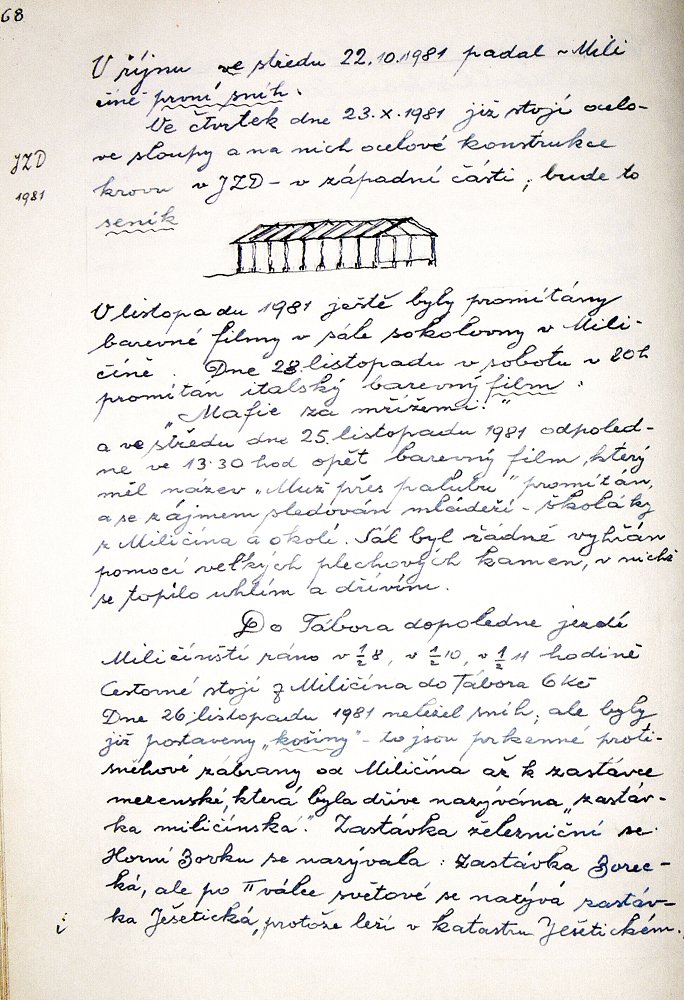 68
V říjnu ve středu 22.10.1981 padal v Mili
číně první sníh.
Ve čtvrtek dne 23.X.1981 již stojí ocelo-
vé sloupy a na nich ocelové konstrukce
JZD
1981
krovu v JZD - v západní části; bude to
seník
V listopadu 1981 ještě byly promítány
barevné filmy v sále sokolovny v Mili-
číně. Dne 28. listopadu v sobotu v 20 h
promítán italský barevný film:
"Mafie za mřížemi."
a ve středu dne 25. listopadu 1981 odpoled-
ne ve 13.30 hod opět barevný film, který
měl název „Muž přes palubu" promítán,
a se zájmem sledován mládeží - školáky
z Miličína a okolí. Sál byl řádně vyhřán
pomocí velkých plechových kamen, v nichž
se topilo uhlím a dřívím.
Do Tábora dopoledne jezdí
Miličínští ráno v ½ 8, v ½ 10, v ½ 11 hodině
Cestovné stojí z Miličína do Tábora 6 Kč
Dne 26. listopadu 1981 neležel sníh, ale byly
již postaveny „košiny" - to jsou prkenné proti-
sněhové zábrany od Miličína až k zastávce
mezenské, která byla dříve nazývána „zastáv-
ka miličínská". Zastávka železniční se
Horní Borku se nazývala: Zastávka Borec-
ká, ale po II válce světové se nazývá zastáv-
ka Ješetická, protože leží v katastru Ješetickém.
i